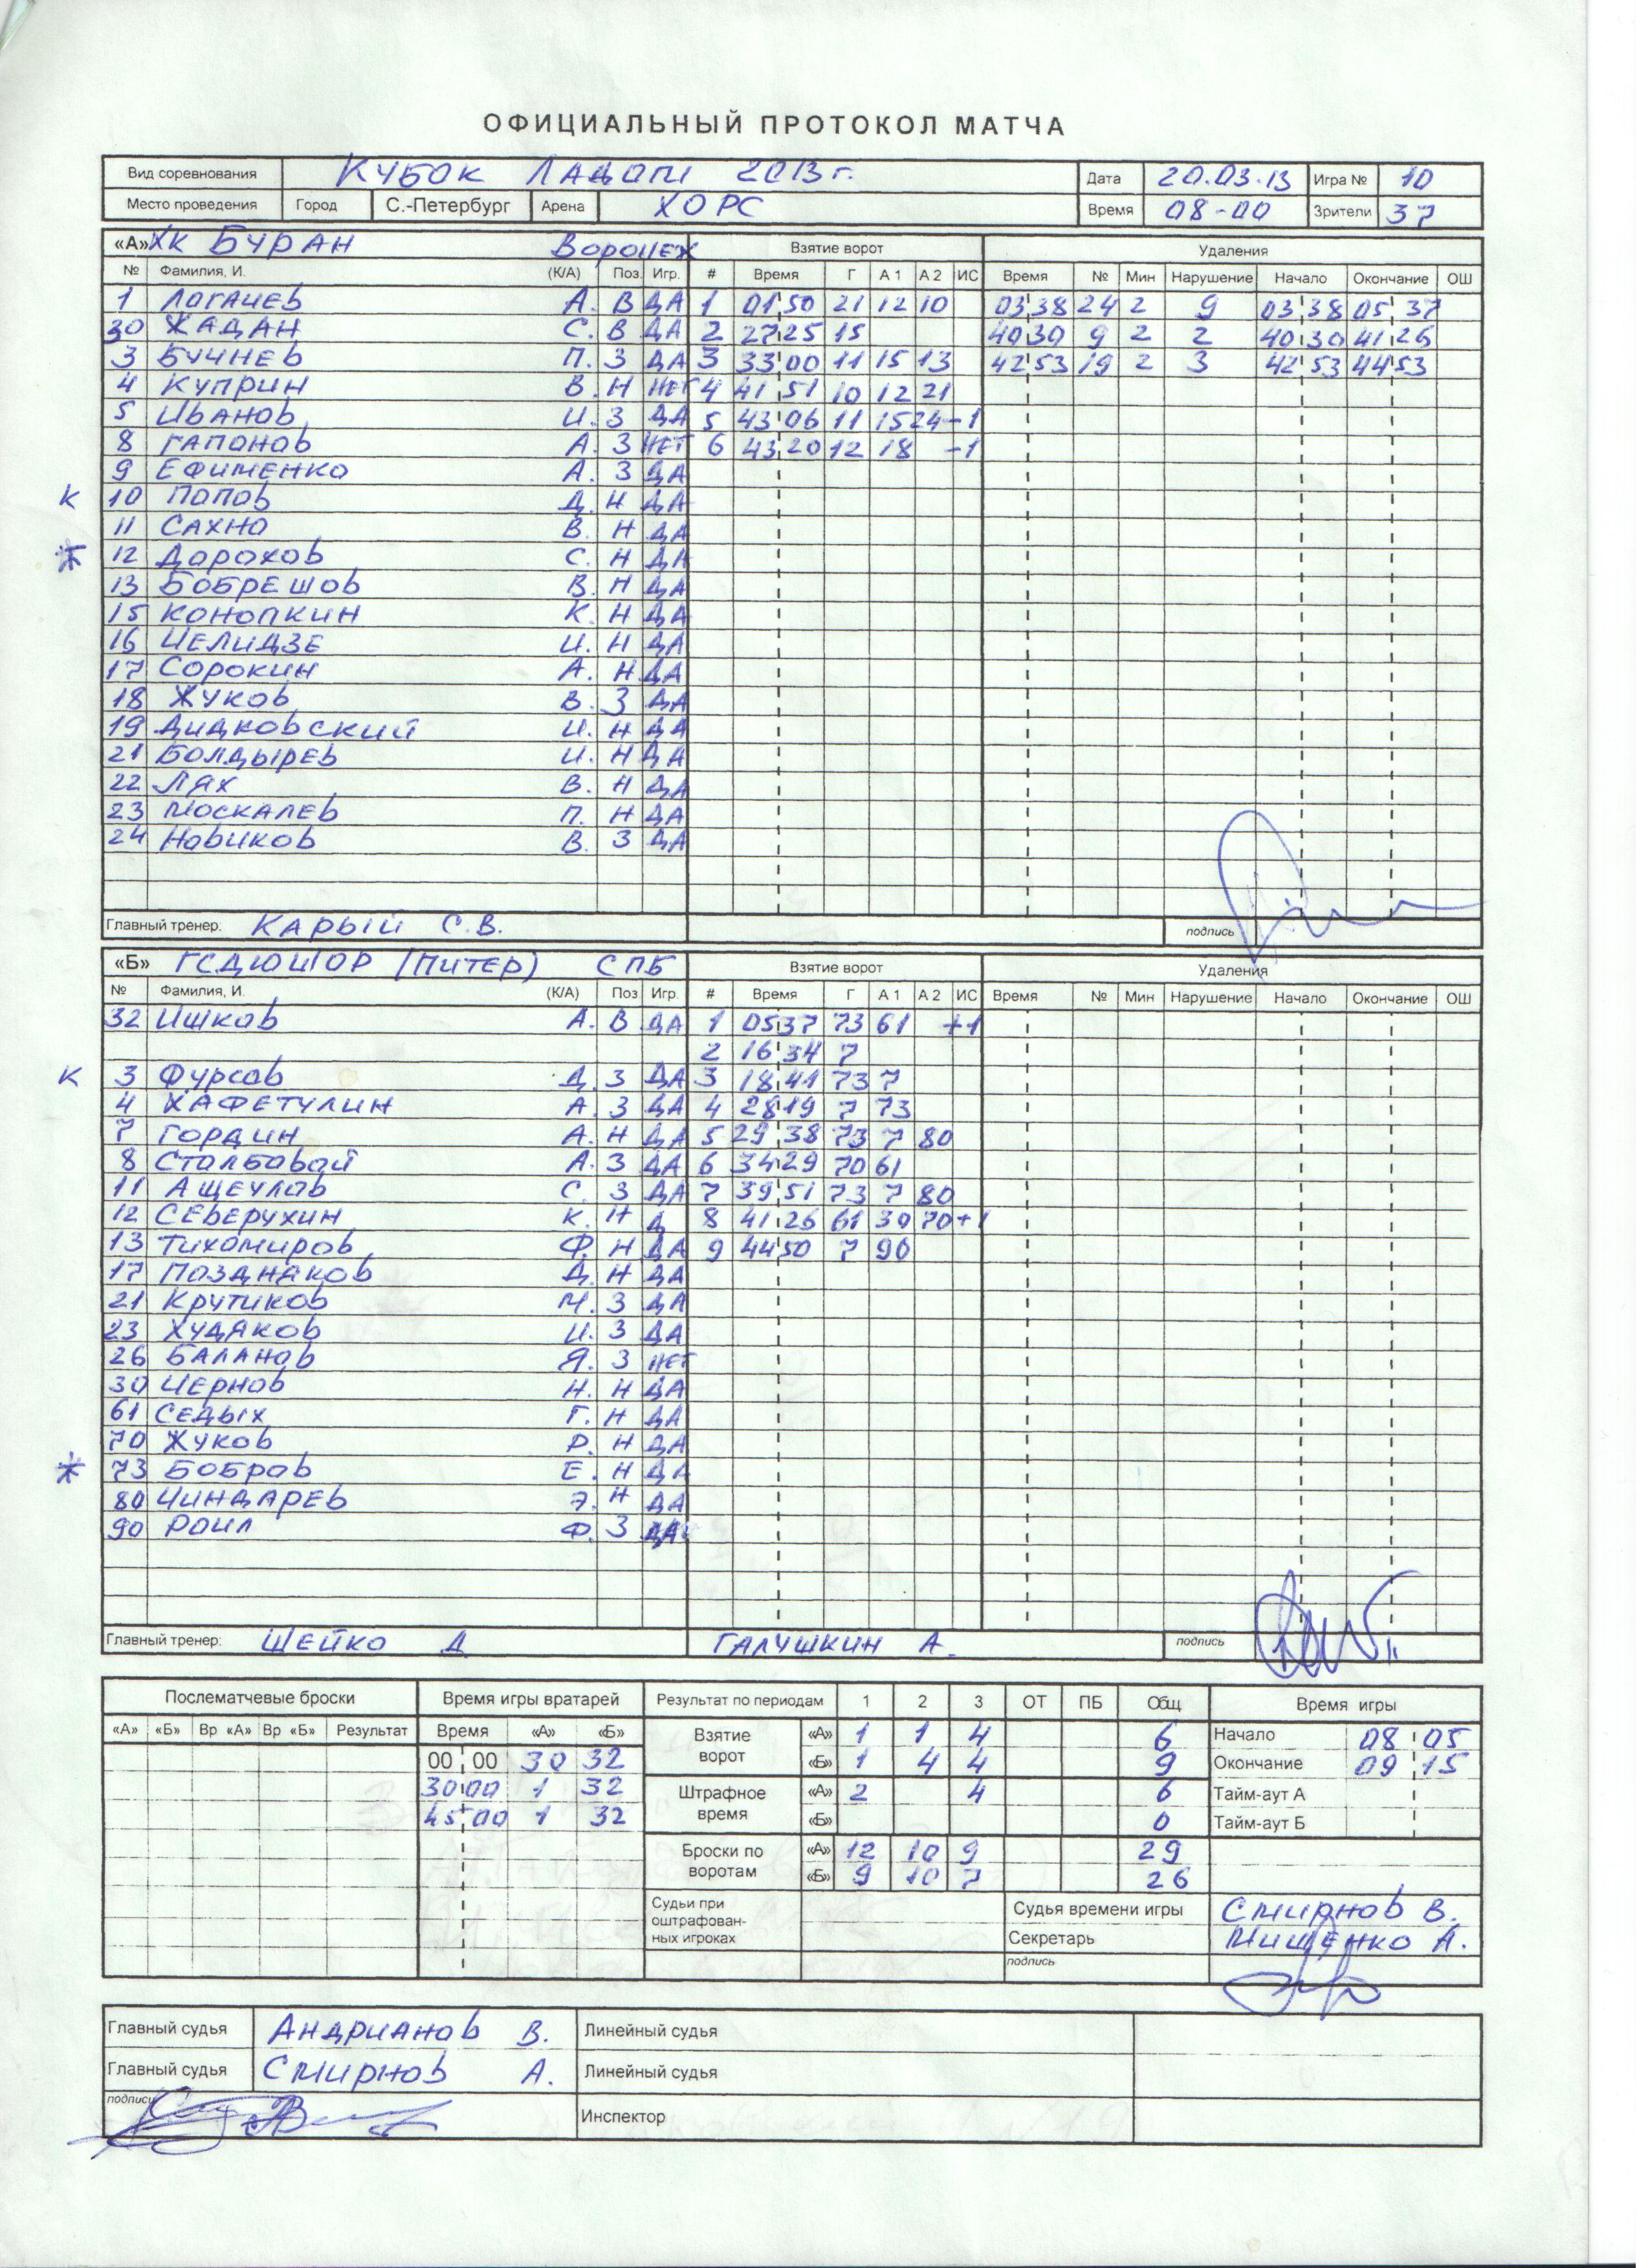 ОФИЦИАЛЬНЫЙ ПРОТОКОЛ МАТЧА
Вид соревнования КУБОК ЛАДОГИ 2013г. Дата 20.03.13 Игра № 10
Место проведения Город С.-Петербург Арена ХОРС Время 08-00 Зрители 37
«А» ХК БУРАН ВОРОНЕЖ Взятие ворот Удаления
№ Фамилия, И. (К/А) Поз. Игр. # Время Г А 1 А 2 ИС Время № Мин Нарушение Начало Окончание ОШ
1 ЛОГАЧЕВ А. В ДА 1 01 50 21 12 10 03 38 24 2 9 03 38 05 37
30 ЖАДАН С. В ДА 2 27 25 15 40 30 9 2 2 40 30 41 26
3 БУЧНЕВ П. З ДА 3 33 00 11 15 13 42 53 19 2 3 42 53 44 53
4 КУПРИН В. Н НЕТ 4 41 51 10 12 21
5 ИВАНОВ И. З ДА 5 43 06 11 15 24 -1
8 ГАПОНОВ А. З НЕТ 6 43 20 12 18 -1
9 ЕФИМЕНКО А. З ДА
К 10 ПОПОВ Д. Н ДА
11 САХНО В. Н ДА
* 12 ДОРОХОВ С. Н ДА
13 БОБРЕШОВ В. Н ДА
15 КОНОПКИН К. Н ДА
16 ЧЕЛИДЗЕ И. Н ДА
17 СОРОКИН А. Н ДА
18 ЖУКОВ В. З ДА
19 ДИДКОВСКИЙ И. Н ДА
21 БОЛДЫРЕВ И. Н ДА
22 ЛЯХ В. Н ДА
23 МОСКАЛЕВ П. Н ДА
24 НОВИКОВ В. З ДА
Главный тренер: КАРЫЙ С.В. подпись
«Б» ГСДЮШОР (ПИТЕР) СПБ Взятие ворот Удаления
№ Фамилия, И. (К/А) Поз Игр. # Время Г А 1 А 2 ИС Время № Мин Нарушение Начало Окончание ОШ
32 ИШКОВ А. В ДА 1 05 37 73 61 +1
2 16 34 7
К 3 ФУРСОВ Д. З ДА 3 18 41 73 7
4 ХАФЕТУЛИН А. З ДА 4 28 19 7 73
7 ГОРДИН А. Н ДА 5 29 38 73 7 80
8 СТОЛБОВОЙ А. З ДА 6 34 29 70 61
11 АЩЕУЛОВ С. З ДА 7 39 51 73 7 80
12 СЕВЕРУХИН К. Н Д 8 41 26 61 30 70 +1
13 ТИХОМИРОВ Ф. Н ДА 9 44 50 7 90
17 ПОЗДНАКОВ Д. Н ДА
21 КРУТИКОВ М. З ДА
23 ХУДЯКОВ И. З ДА
26 БАЛАНОВ Я. З НЕТ
30 ЧЕРНОВ Н. Н ДА
61 СЕДЫХ Г. Н ДА
70 ЖУКОВ Р. Н ДА
* 73 БОБРОВ Е. Н ДА
80 ЧИНДАРЕВ Э. Н ДА
90 РОИЛ Ф. З ДА
Главный тренер: ШЕЙКО Д ГАЛУШКИН А. подпись
Послематчевые броски Время игры вратарей Результат по периодам 1 2 3 ОТ ПБ Общ. Время игры
«А» «Б» Вр «А» Вр «Б» Результат Время «А» «Б» Взятие ворот «А» 1 1 4 6 Начало 08 05
00 00 30 32 «Б» 1 4 4 9 Окончание 09 15
30 00 1 32 Штрафное время «А» 2 4 6 Тайм-аут А
45 00 1 32 «Б» 0 Тайм-аут Б
Броски по воротам «А» 12 10 9 29
«Б» 9 10 7 26
Судьи при оштрафован-ных игроках Судья времени игры СМИРНОВ В.
Секретарь МИЩЕНКО А.
подпись
Главный судья АНДРИАНОВ В. Линейный судья
Главный судья СМИРНОВ А. Линейный судья
подписи Инспектор